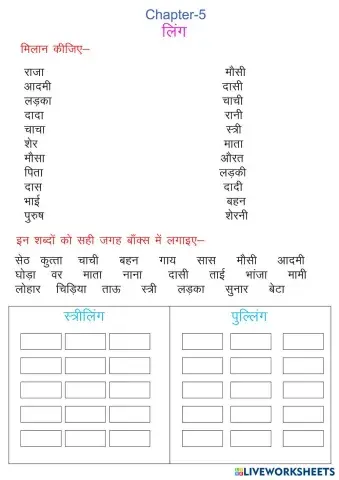 Chapter-5
लिंग
मिलान कीजिए–
राजा मौसी
आदमी दासी
लड़का चाची
दादा रानी
चाचा स्त्री
शेर माता
मौसा औरत
पिता लड़की
दास दादी
भाई बहन
पुरुष शेरनी
इन शब्दों को सही जगह बॉक्स में लगाइए–
सेठ कुत्ता चाची बहन गाय सास मौसी आदमी
घोड़ा वर माता नाना दासी ताई भांजा मामी
लोहार चिड़िया ताऊ स्त्री लड़का सुनार बेटा
स्त्रीलिंग पुल्लिंग
LIVEWORKSHEETS